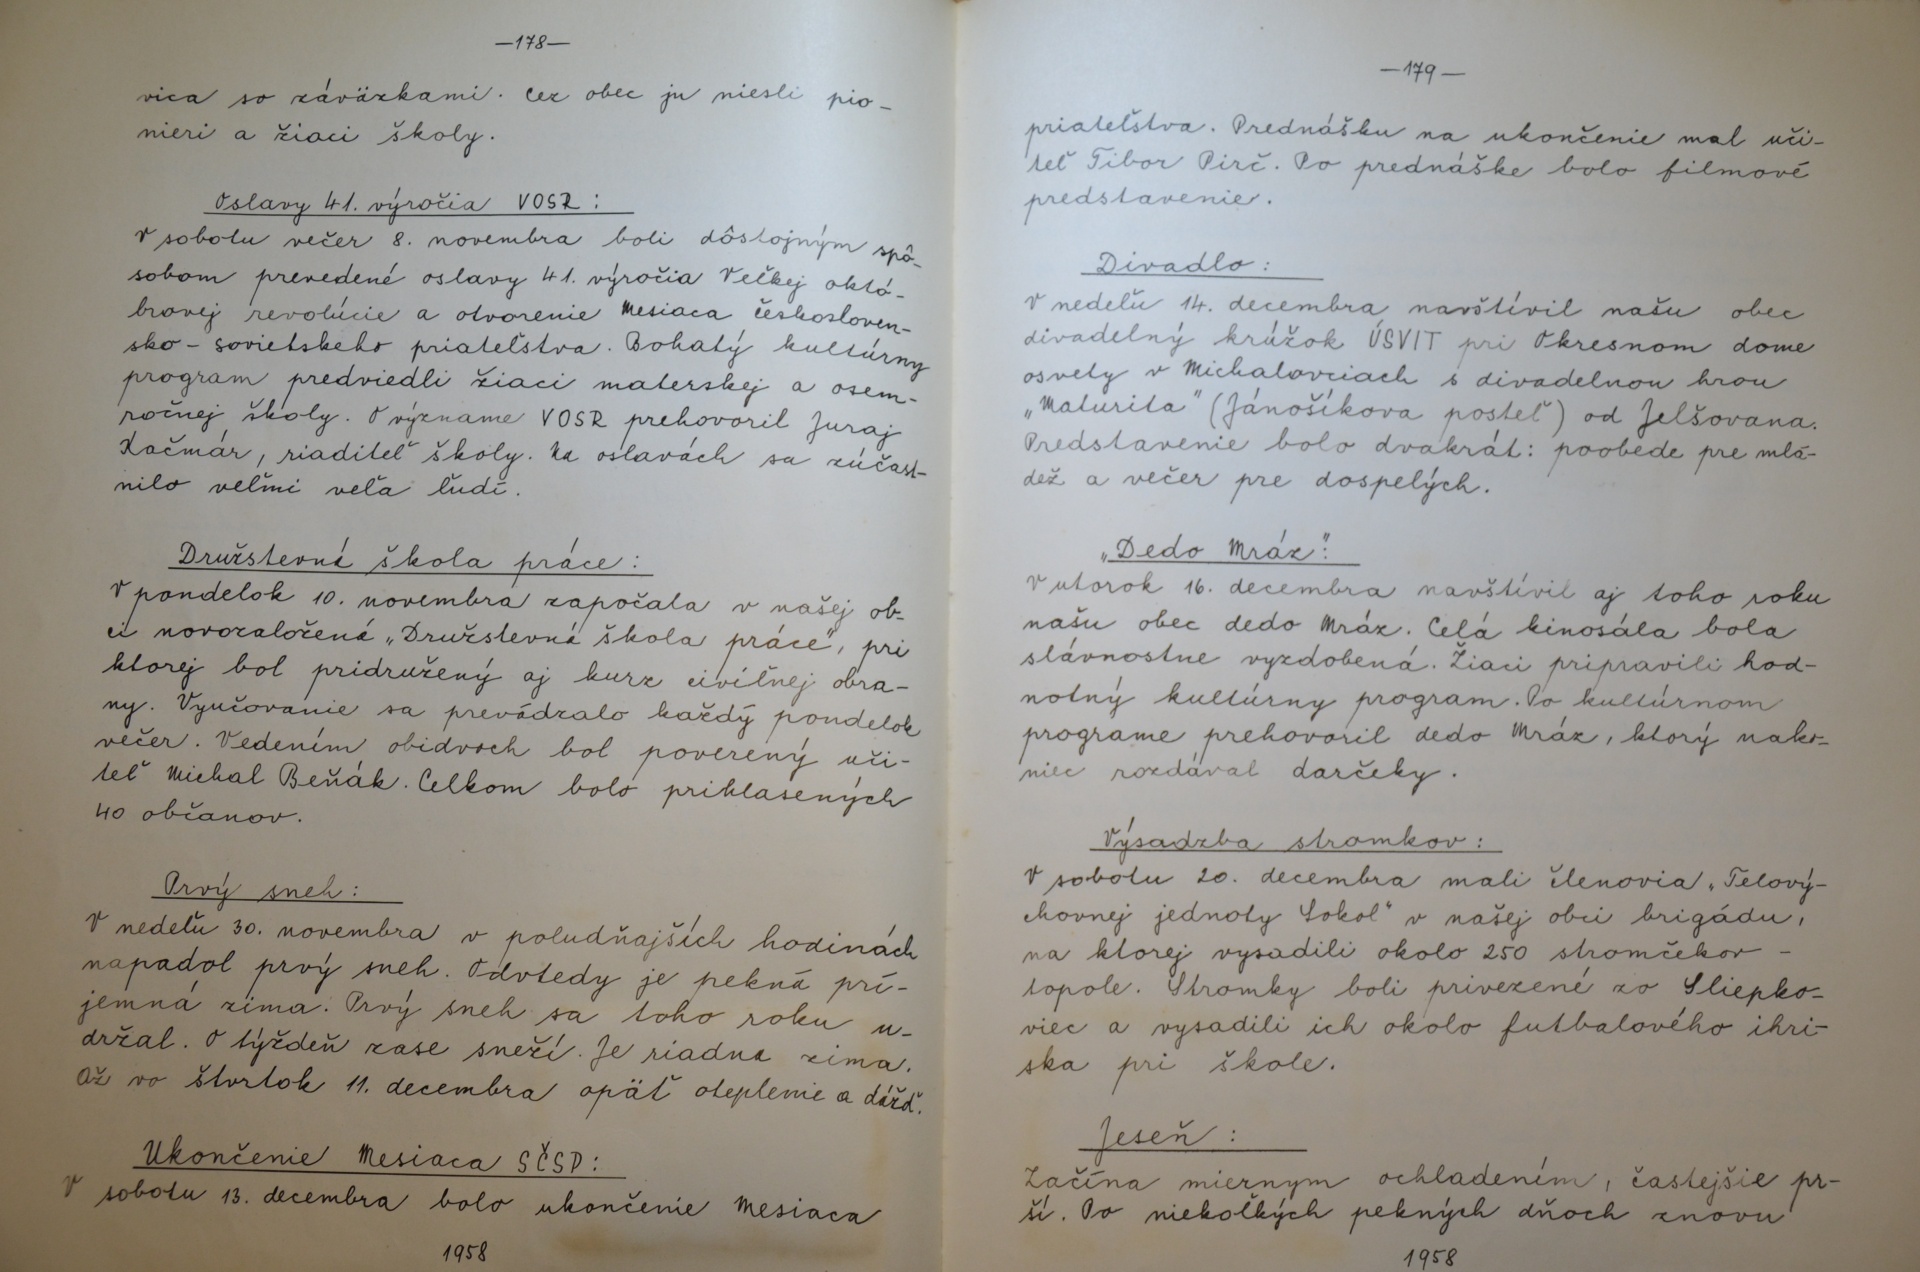 —178—
vica so záväzkami. Cez obec ju niesli pio-
nieri a žiaci školy.
Oslavy 41. výročia VOSR:
V sobotu večer 8. novembra boli dôstojným spô-
sobom prevedené oslavy 41. výročia Veľkej októ-
brovej revolúcie a otvorenie Mesiaca českosloven-
sko-sovietskeho priateľstva. Bohatý kultúrny
program predviedli žiaci materskej a osem-
ročnej školy. O význame VOSR prehovoril Juraj
Kačmár, riaditeľ školy. Na oslavách sa zúčast-
nilo veľmi veľa ľudí.
Družstevná škola práce:
V pondelok 10. novembra započala v našej ob-
ci novozaložená „Družstevná škola práce", pri
ktorej bol pridružený aj kurz civilnej obra-
ny. Vyučovanie sa prevádzalo každý pondelok
večer. Vedením obidvoch bol poverený uči-
teľ Michal Beňák. Celkom bolo prihlasených
40 občanov.
Prvý sneh:
V nedeľu 30. novembra v poludňajších hodinách
napadol prvý sneh. Odvtedy je pekná prí-
jemná zima. Prvý sneh sa toho roku u-
držal. O týždeň zase sneží. Je riadna zima.
Až vo štvrtok 11. decembra opäť oteplenie a dážď.
Ukončenie Mesiaca SČSP:
V sobotu 13. decembra bolo ukončenie Mesiaca
1958
—179—
priateľstva. Prednášku na ukončenie mal uči-
teľ Tibor Pirč. Po prednáške bolo filmové
predstavenie.
Divadlo:
V nedeľu 14. decembra navštívil našu obec
divadelný krúžok ÚSVIT pri Okresnom dome
osvety v Michalovciach s divadelnou hrou
„Maturita" (Jánošíkova posteľ) od Jelšovana.
Predstavenie bolo dvakrát: poobede pre mlá-
dež a večer pre dospelých.
„Dedo Mráz":
V utorok 16. decembra navštívil aj toho roku
našu obec dedo Mráz. Celá kinosála bola
slávnostne vyzdobená. Žiaci pripravili hod-
notný kultúrny program. Po kultúrnom
programe prehovoril dedo Mráz, ktorý nako-
niec rozdával darčeky.
Výsadzba stromkov:
V sobotu 20. decembra mali členovia „Telový-
chovnej jednoty Sokol" v našej obci brigádu,
na ktorej vysadili okolo 250 stromčekov -
topole. Stromky boli privezené zo Sliepko-
viec a vysadili ich okolo futbalového ihri-
ska pri škole.
Jeseň:
Začína miernym ochladením, častejšie pr-
ší. Po niekoľkých pekných dňoch znovu
1958